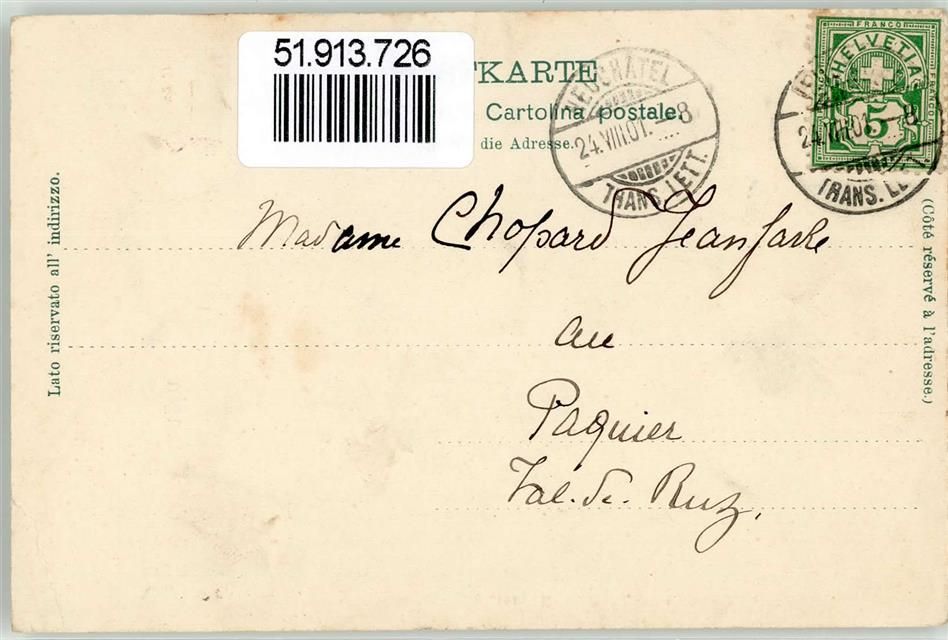 51.913.726
TKARTE
Cartolina postale.
die Adresse.
NEUCHATEL
24.VIII.01. 8
TRANS. LETT.
FRANCO
HELVETIA
5
24.VIII.01. 8
TRANS. LE
Lato riservato all' indirizzo.
(Côté réservé à l'adresse.)
Madame Chopard
au
Paquier
Val-de-Ruz,